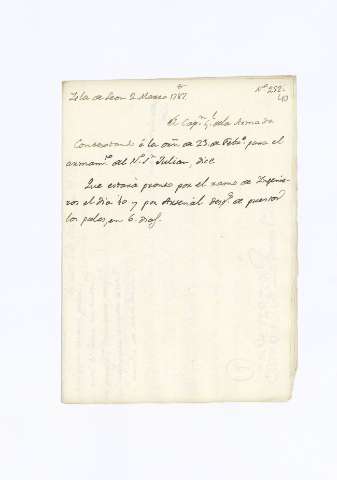 Isla de Leon 2 Marzo 1787
Nº 252
El Capn Gl. de la Armada
Contextando á la orn de 23. de Febo para el
armamto del No Sn Julian, dice
Que estará pronto por el ramo de Ingenie-
ros el dia 10 y por Arsenal desps de puestos
los palos, en 6. dias.